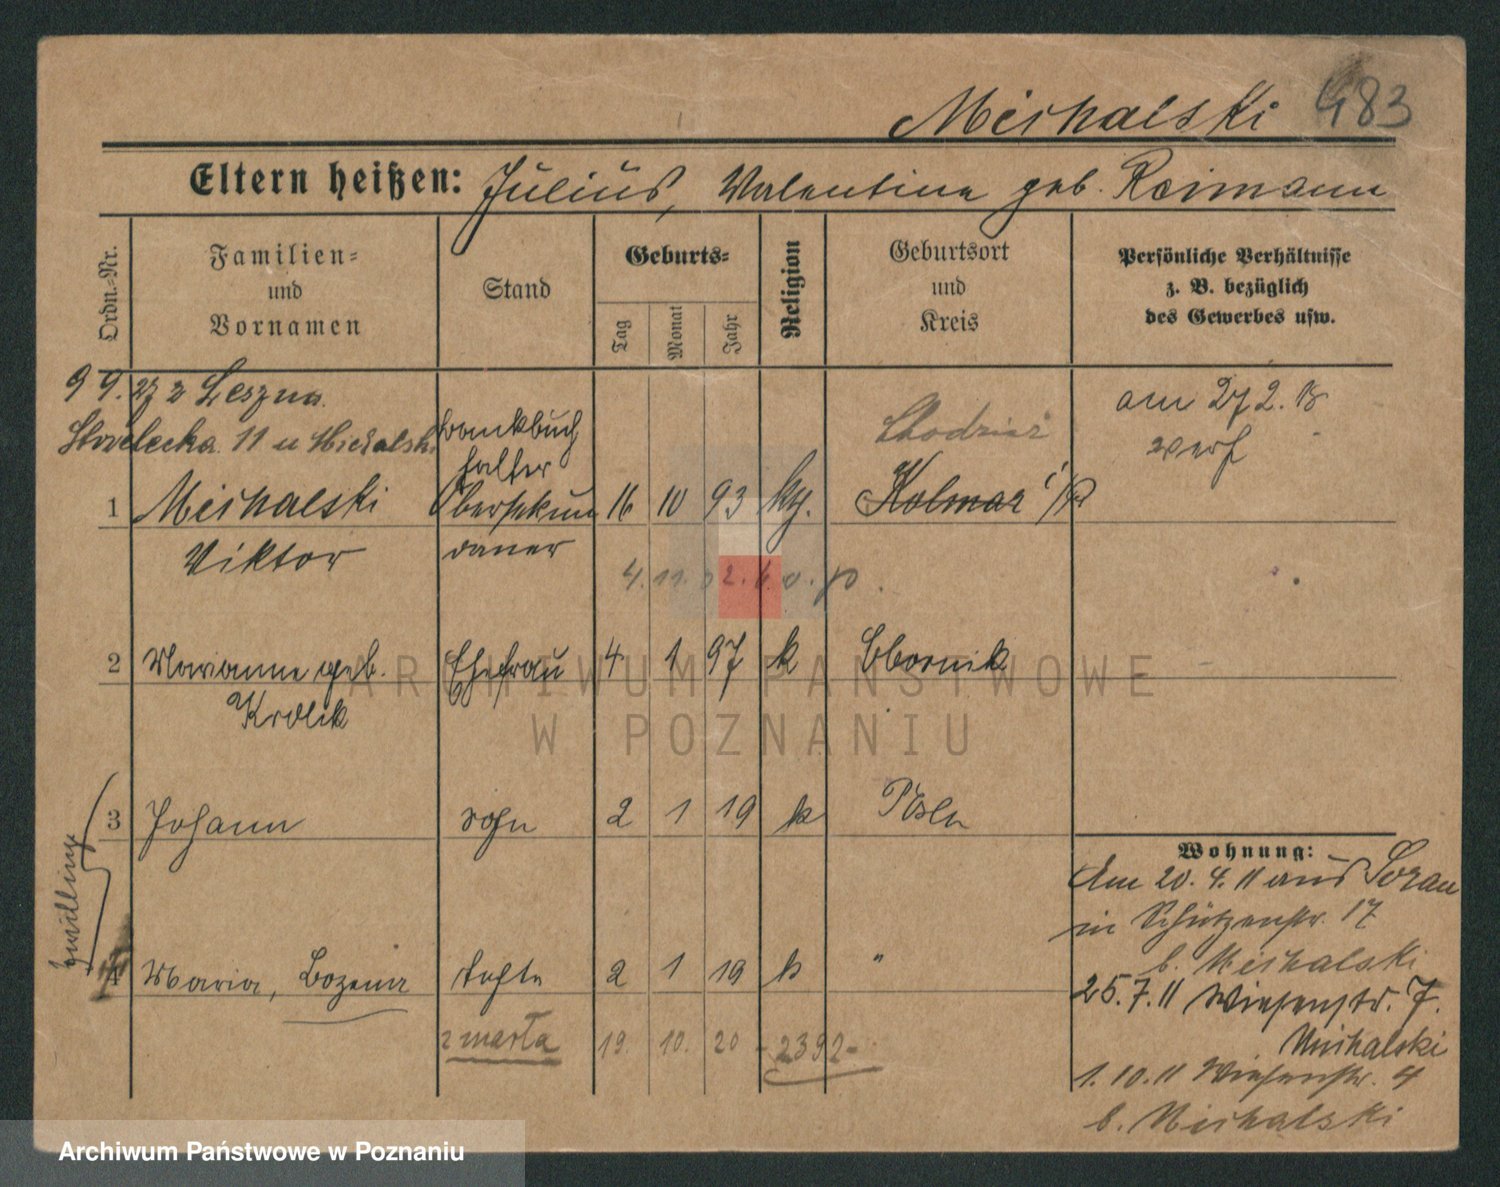 Michalski 483
Eltern heißen: Julius, Valentine geb. Reimann
Ordn.-Nr.
Familien-
und
Vornamen
Stand
Geburts-
Tag
Monat
Jahr
Religion
Geburtsort
und
Kreis
Persönliche Verhältnisse
z. B. bezüglich
des Gewerbes usw.
99. 27 z Leszna
Strzelecka 11 u Michalski
Bankbuch
halter
Chodzież
am 27 2. 18
verh
1 Michalski Obersekun 16 10 93 kg. Kolmar i/P
Viktor daner
4. 11.
2 Marianne geb. Ehefrau 4 1 97 k Obornik
Krolik
3 Johann Sohn 2 1 19 k Posen
Zwilling
4 Maria, Bozena Tochte 2 1 19 k "
zmarła 19. 10. 20 -2392-
Wohnung:
Am 20. 4. 11 aus Sorau
in Schützenstr. 17
b. Michalski
25. 7. 11 Wiesenstr. 7.
Michalski
1. 10. 11 Wiesenstr. 4
b. Michalski
ARCHIWUM PAŃSTWOWE
W POZNANIU
Archiwum Państwowe w Poznaniu